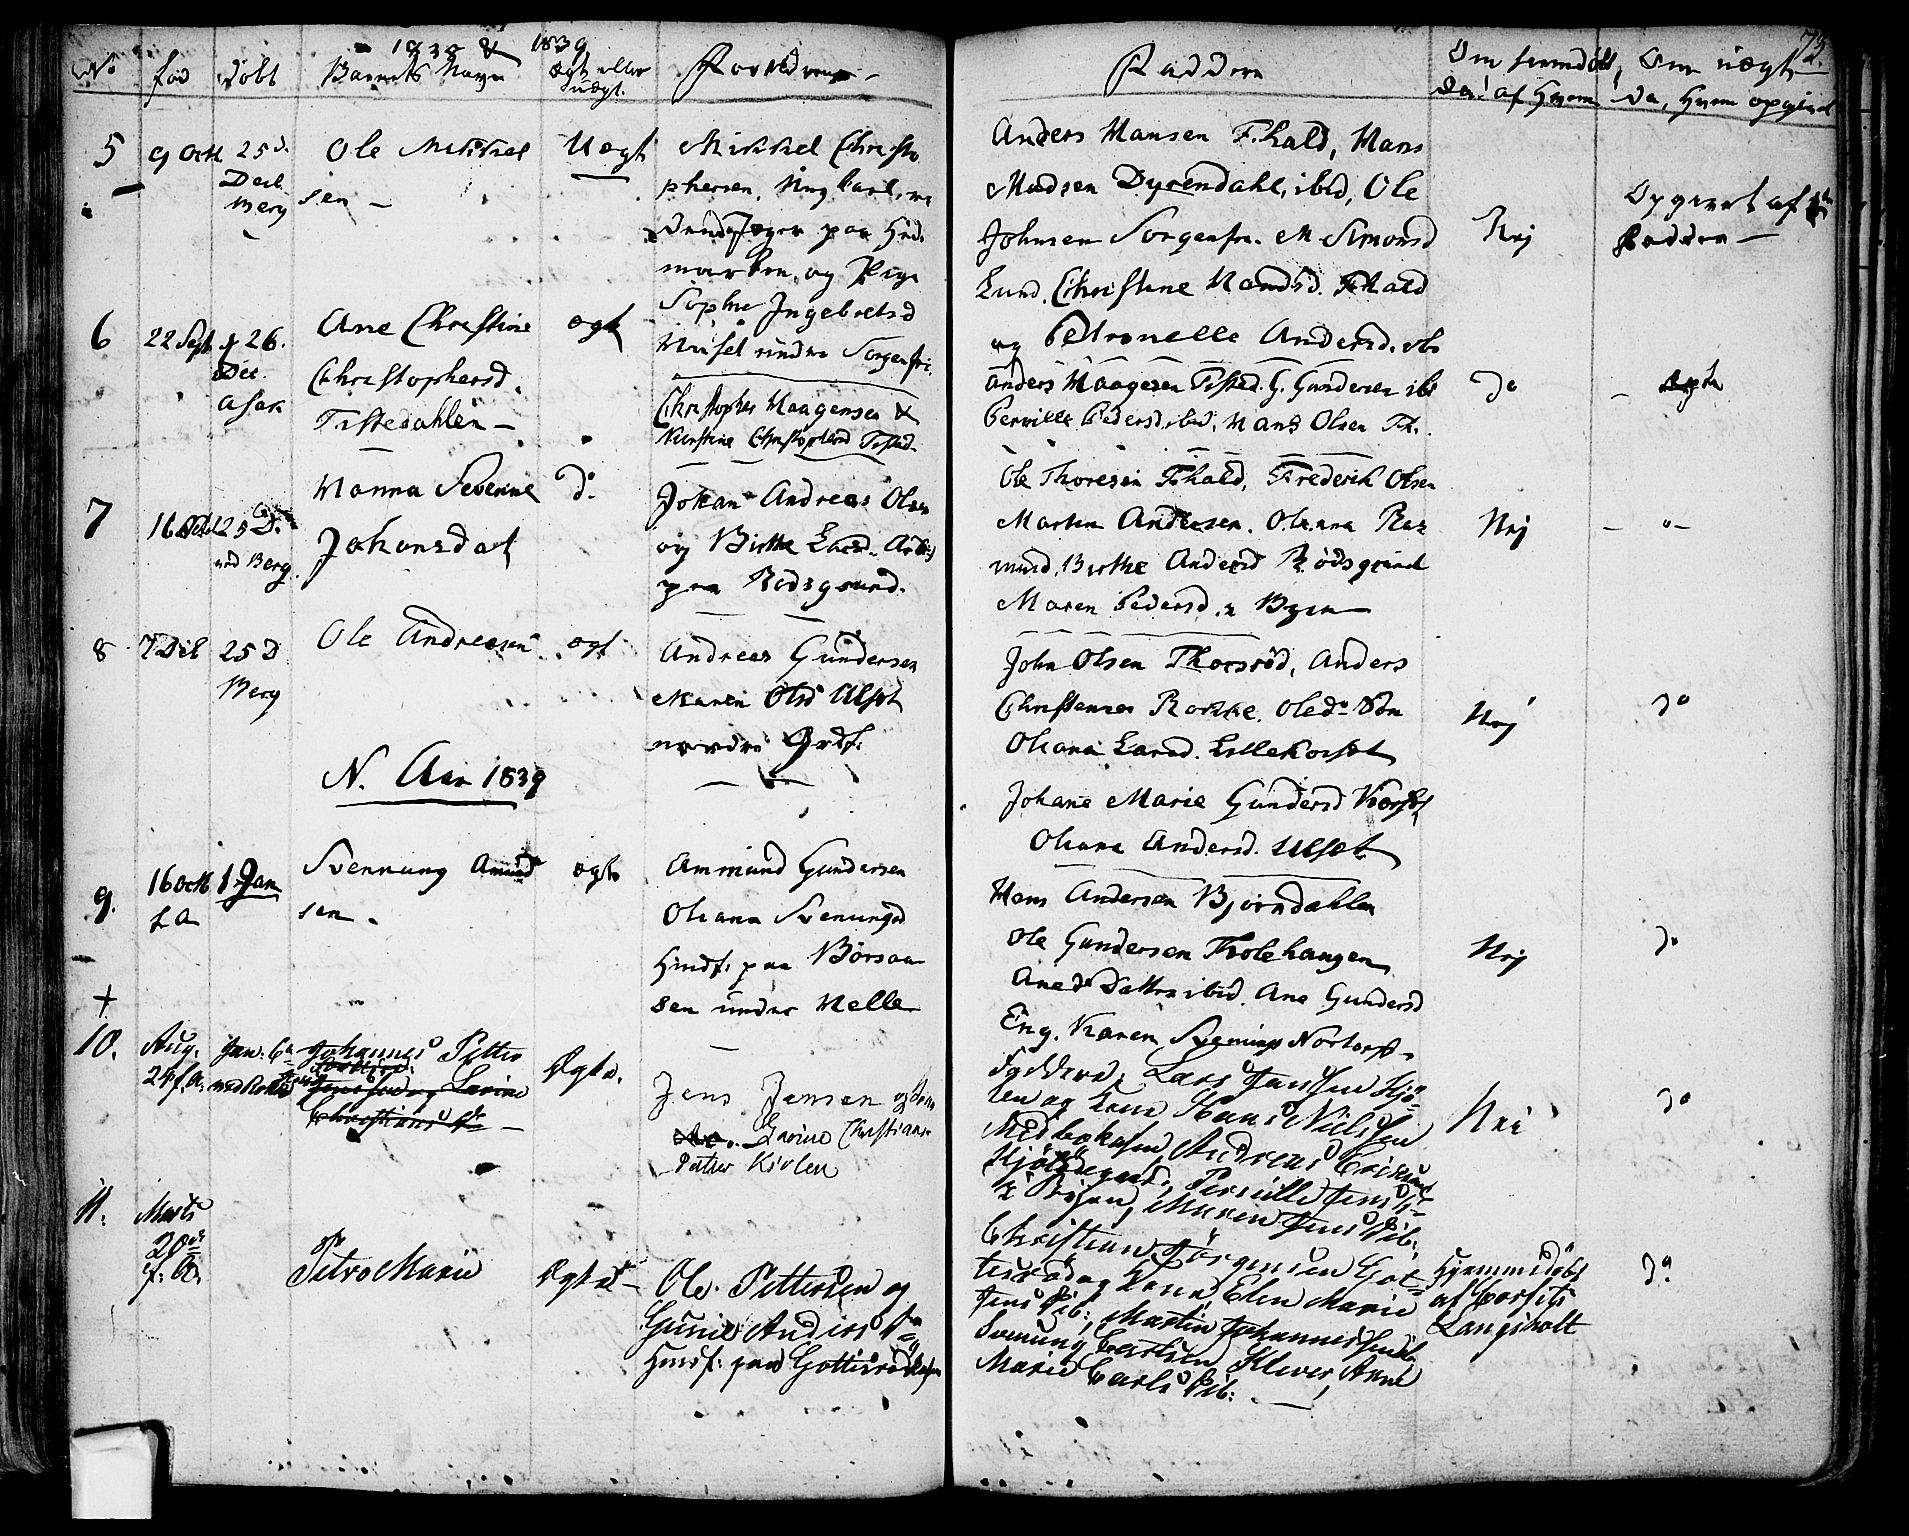 1838 & 1839
73
No
fød
døbt
Barnets Navn
ægt eller
uægt.
Forældrene
Faddere
Om hiemdøbt,
Da! af Hvem
Om uægt
Da, Hvem opgived
5
9 Octb
25 d.
Decb
Berg
Ole Mikkel
sen
Uægt
Mikkel Christo
phersen, Ungkarl,
paa Hed-
marken, og Pige
Sophie Ingebretsd
under Sorgenfri.
Anders Hansen F.hald, Hans
Madsen Dyrendahl, ibid, Ole
Johnsen Sorgenfri. M Simonsd
Lund. Christine Hansd. Fhald
og Petronelle Andersd. ibd
Nej
Opgivet af
Faddere
6
22 Sept
d 26.
Dec.
Asak
Ane Christine
Christophersd.
Tistedahlen
ægt
Christopher Haagensen &
Kirstine Christophersd Tisted.
Anders Haagesen Tisted. G. Gundersen ibd
Pernille Pedersd. ibid, Hans Olsen Th.
Ja
ægte
7
16
25 D.
ved Berg.
Hanna Severine
Johansdat
d:
Johan Andreas Olsen
og Birthe Larsd. Arb:
paa Rødsgrund.
Ole Thoresen Fhald, Frederik Olsen
Martin Andersen. Oleana Ras
musd. Birthe Andersd Rødsgrund
Maren Pedersd. i Byen
Nej
— " —
8
7 Deb
25 D
Berg
Ole Andreasen
ægt
Andreas Gundersen
Maren Olsd Ulset
nordre Grdf.
John Olsen Thorsrød, Anders
Christensen Rokke. Ole do Søn
Oleana Larsd. Lillekorset
Johane Marie Gundersd Korset
Oleana Andersd. Ulset
Nej
do
N. Aar 1839
9.
16 Octb
f. A
1 Jan
Svennung Amund
sen.
ægte
Ammund Gundersen
Oleana Svenungsd
Huusf: paa Børsaa
sen under Helle
Hans Andersen Bjørndahlen
Ole Gundersen Trolehaugen
Ane d: Datter ibid. Ane Gundersd
Eng. Karen Svenungs Nortorp
Nej
do
+
10.
Aug.
24 f. A.
Jan: 6te
Johannes Petter
Ægte.
Jens Jensen og Kone
Lavine Christians-
Datter Kiølen
Faddere, Lars Jenssen Kjø-
len og Kone Hans Nielssen
Andreas
Pernille Jens D:
i Byen, Maren Jens D ib:
Nei
do
11.
Marts
28de
f. A.
Petro Marie
Ægte
Ole Pettersen og
Gunil Anders Dr
Huusf: paa
Christian Jörgensen Got-
tisrød og Kone Elen Marie
Jens D ib:, Martin Johannessen ib
Svenung Carlsen Klever, Anne
Marie Carls D ib:
Hjemmedöbt
af
Langholt
do